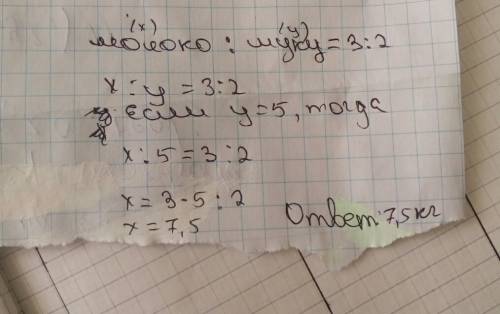 (x) (y)
молоко : муку = 3:2
x : y = 3:2
если y=5, тогда
x : 5 = 3 : 2
x = 3·5 : 2
x = 7,5
Ответ: 7,5 кг